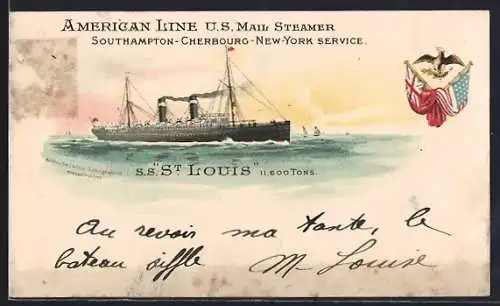 AMERICAN LINE U.S. MAIL STEAMER
SOUTHAMPTON-CHERBOURG-NEW-YORK SERVICE.
S.S. "ST LOUIS" 11.600 TONS.
Au revoir ma tante, le
bateau siffle M- Louise